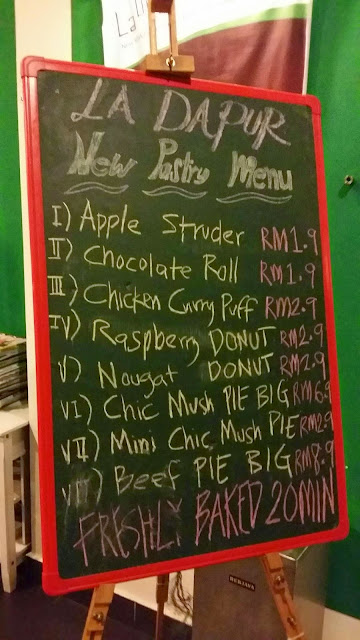 LA DAPUR
New Pastry Menu
I) Apple Struder RM1.9
II) Chocolate Roll RM1.9
III) Chicken Curry Puff RM2.9
IV) Raspberry DONUT RM2.9
V) Nougat DONUT RM2.9
VI) Chic Mush PIE BIG RM6.9
VII) Mini Chic Mush PIE RM2.9
VIII) Beef PIE BIG RM8.9
FRESHLY BAKED 20MIN
BERJAYA